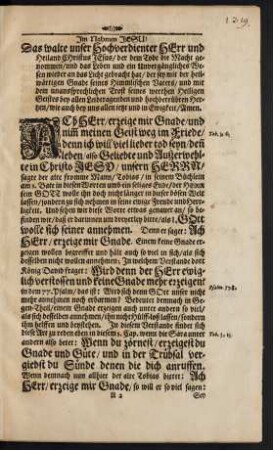 Im Nahmen JESU/
Das walte unser Hochverdienter HErr und
Heiland Christus JEsus/ der dem Tode die Macht ge-
nommen/ und das Leben und ein Unvergänglicher We-
sen wieder an das Licht gebracht hat/ der sey mit der heil-
wärtigen Gnade seines Himmlischen Vaters/ und mit
dem unaussprechlichen Trost seines werthen Heiligen
Geistes bey allen
Hertzen/ wie auch bey uns allen jetzt und in Ewigkeit/ Amen.
ACh HErr/ erzeige mir Gnade/ und
nim̃ meinen Geist weg im Friede/
denn ich wil viel lieber tod seyn/ deñ
leben/ also Geliebte und Außerwehl-
te in Christo JESU/ unsern HERRN/
saget der alte fromme Mann/ Tobias/ in seinem Büchlein am
3. Bate in diesen Worten umb ein seliges Ende/ der HErr
sein GOTT wolle ihn doch nicht länger in dieser bösen Welt
lassen/ sondern zu sich nehmen in seine ewige Freude und Herr-
ligkeit. Und so wir die Worte etwas genauer an/ so be-
finden wir/ daß er darinnen um dreyerley bitte/ 1. GOtt
wolle sich seiner annehmen. Denn er saget: Ach
HErr/ erzeige mir Gnade. Einem keine Gnade er-
zeigen wollen
desselben nicht wollen annehmen; In welchem Verstande dort
König David fraget: Wird denn der HErr ewig-
lich verstossen und keine Gnade mehr erzeigen?
in dem 77. Psalm/ das ist: Wird sich denn GOtt unser nicht
mehr annehmen noch erbarmen? Bedeutet demnach in Ge-
gen-Theil/ einem Gnade erzeigen auch unter andern so viel/
als sich desselben annehmen/ ihn nicht Hülff-loß lassen/ sondern
ihm helffen und beystehen. In diesem Verstande findet sich
diese Art zu reden
andern also betet: Wenn du zörnest/ erzeigest du
Gnade und Güte/ und in der Trübsal ver-
giebest du Sünde denen die dich anruffen.
Wenn demnach nun allhier der alte Tobias bittet: Ach
HErr/ erzeige mir Gnade, so will er so viel sagen:
A 2
Tob. 3, 6.
Psalm 77, 8.
Tob. 3, 13.